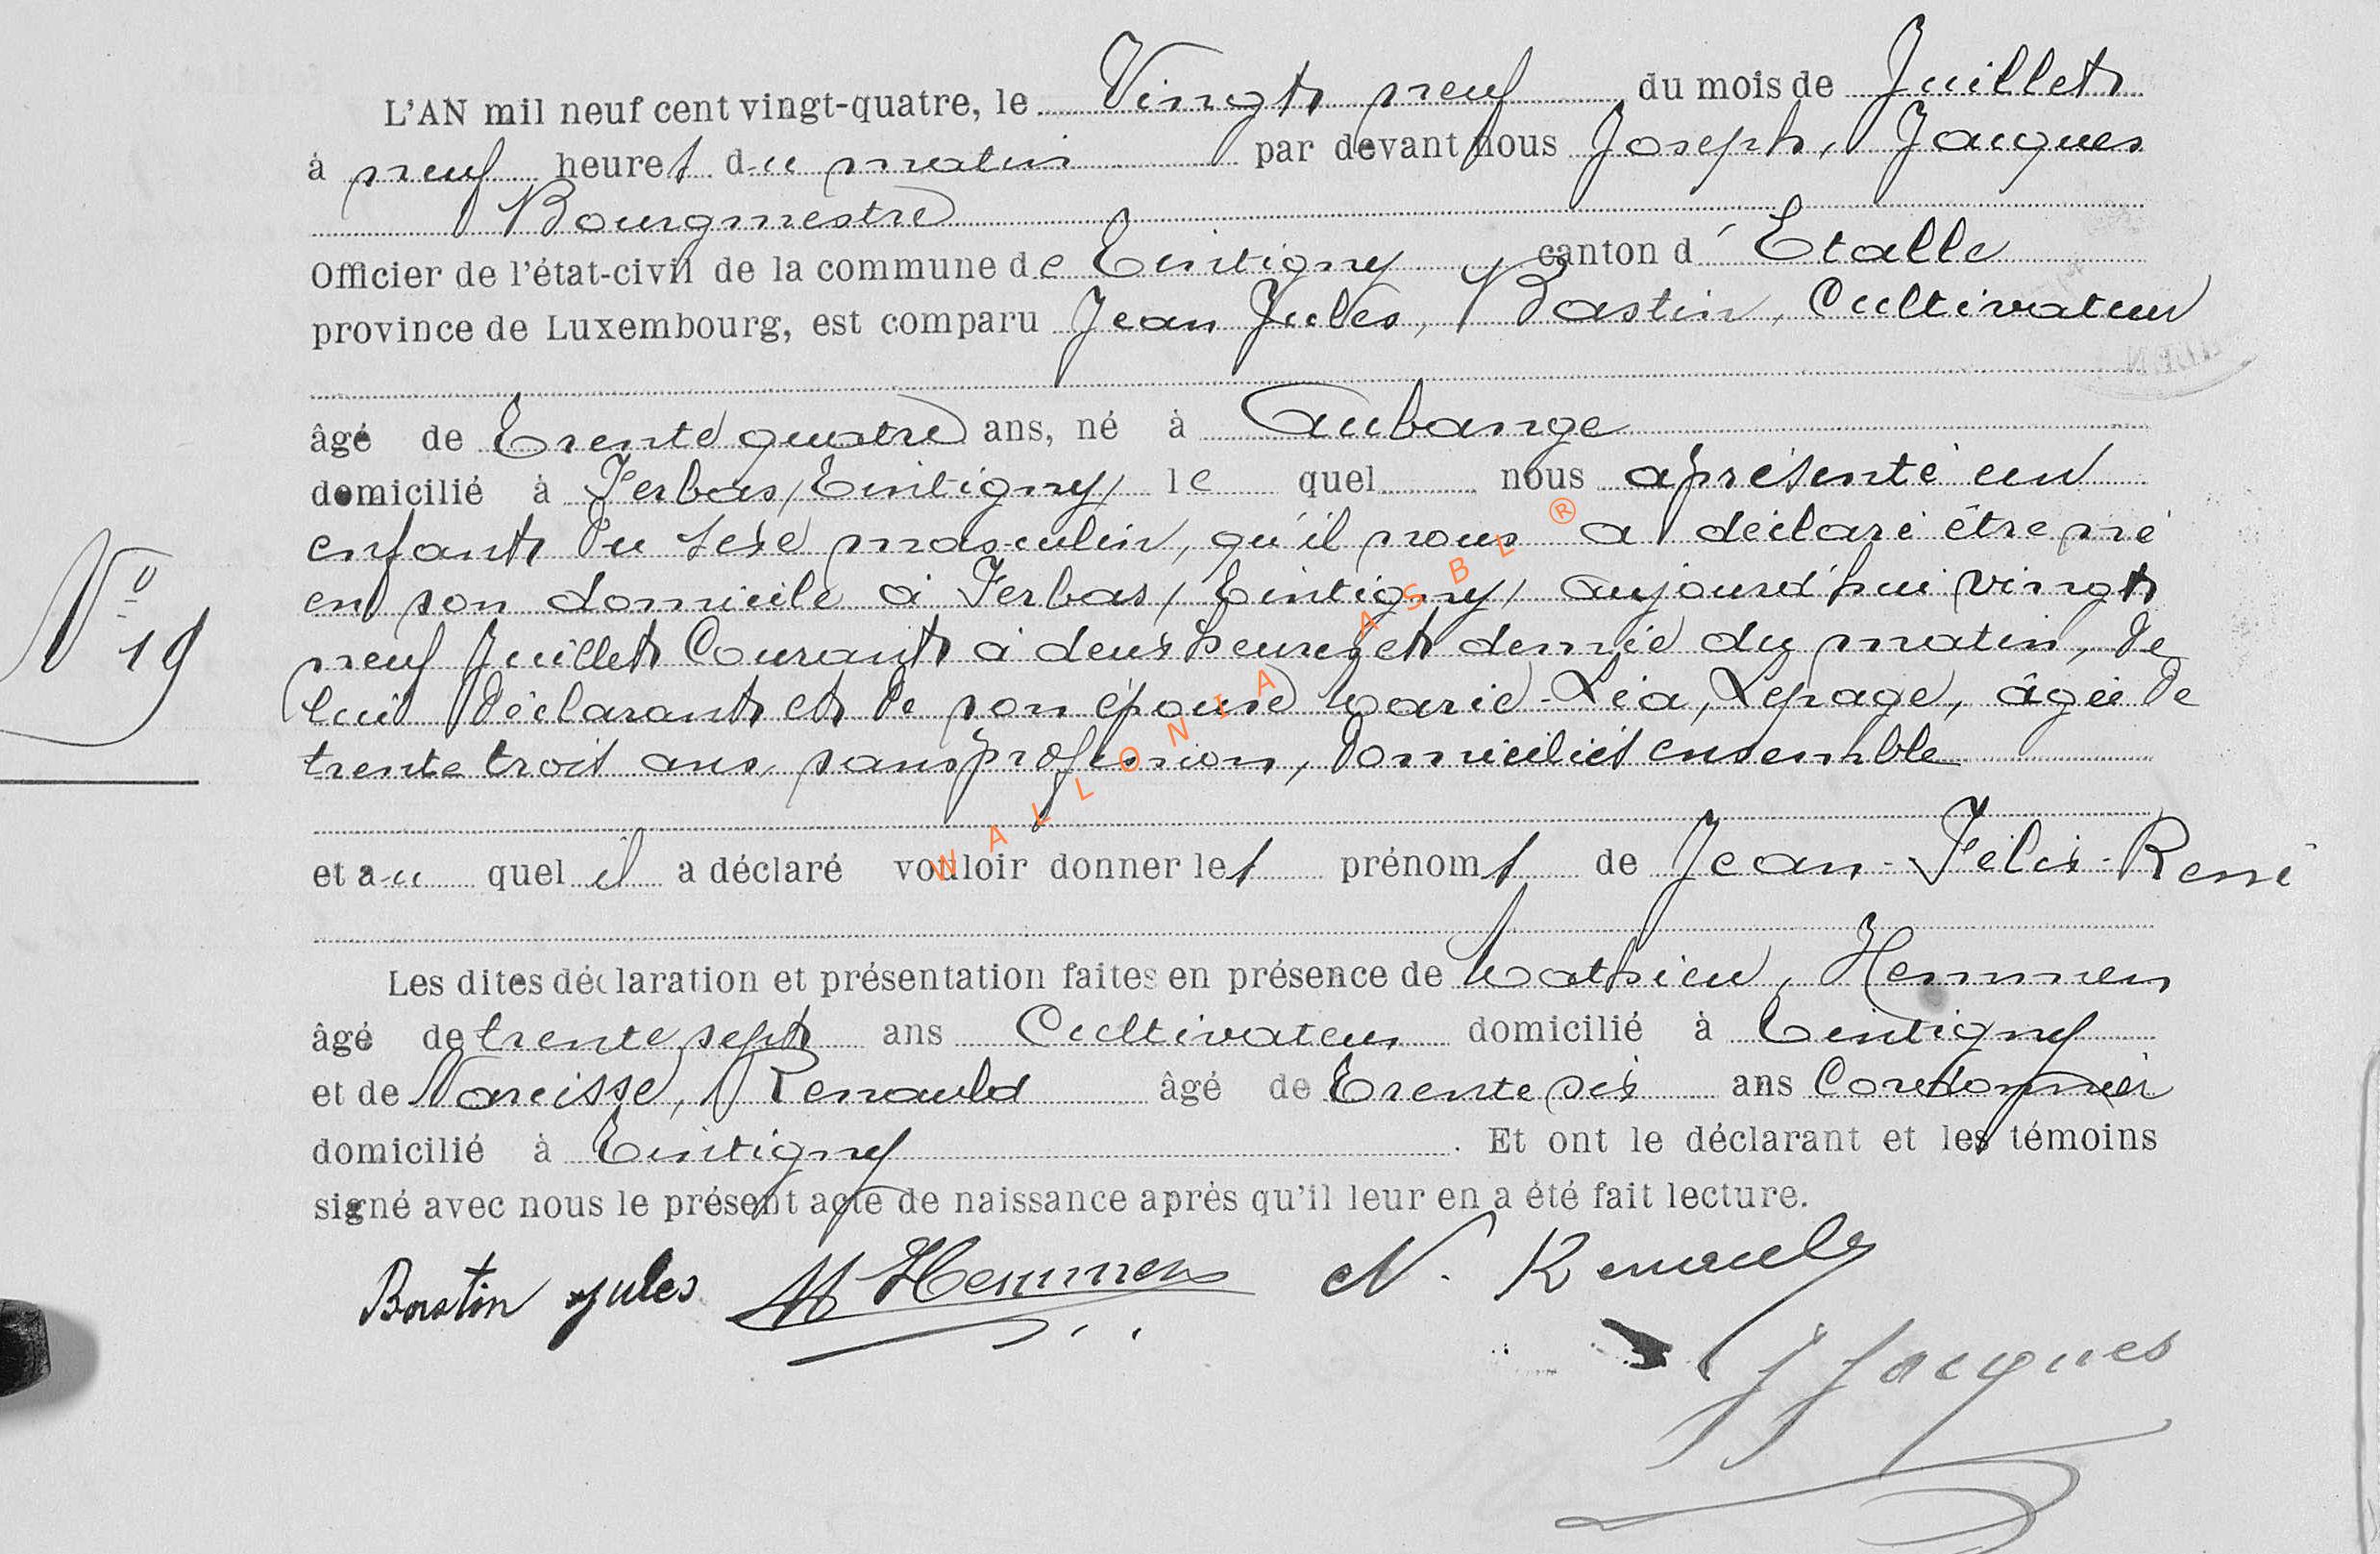 L'AN mil neuf cent vingt-quatre, le Vingt neuf du mois de Juillet
à neuf heures du matin par devant nous Joseph, Jacques
Bourgmestre
Officier de l'état-civil de la commune de Tintigny canton d'Etalle
province de Luxembourg, est comparu Jean Jules, Bastin, Cultivateur
âgé de Trente quatre ans, né à Aubange
domicilié à Ferbas, Tintigny, le quel nous a présenté un
enfant du sexe masculin, qu'il nous a déclaré être né
en son domicile à Ferbas, Tintigny, aujourd'hui vingt
neuf Juillet Courant à deux heures et demie du matin, de
lui déclarant et de son épouse Marie-Léa, Lepage, âgée de
trente trois ans, sans profession, domiciliés ensemble
N° 19
et au quel il a déclaré vouloir donner les prénoms de Jean-Félix-René
Les dites déclaration et présentation faites en présence de Mathieu, Hemmen
âgé de trente sept ans Cultivateur domicilié à Tintigny
et de Narcisse, Renauld âgé de Trente six ans Cordonnier
domicilié à Tintigny. Et ont le déclarant et les témoins
signé avec nous le présent acte de naissance après qu'il leur en a été fait lecture.
Bastin Jules M Hemmen N. Renauld
J Jacques
WALLONIA ASBL ®